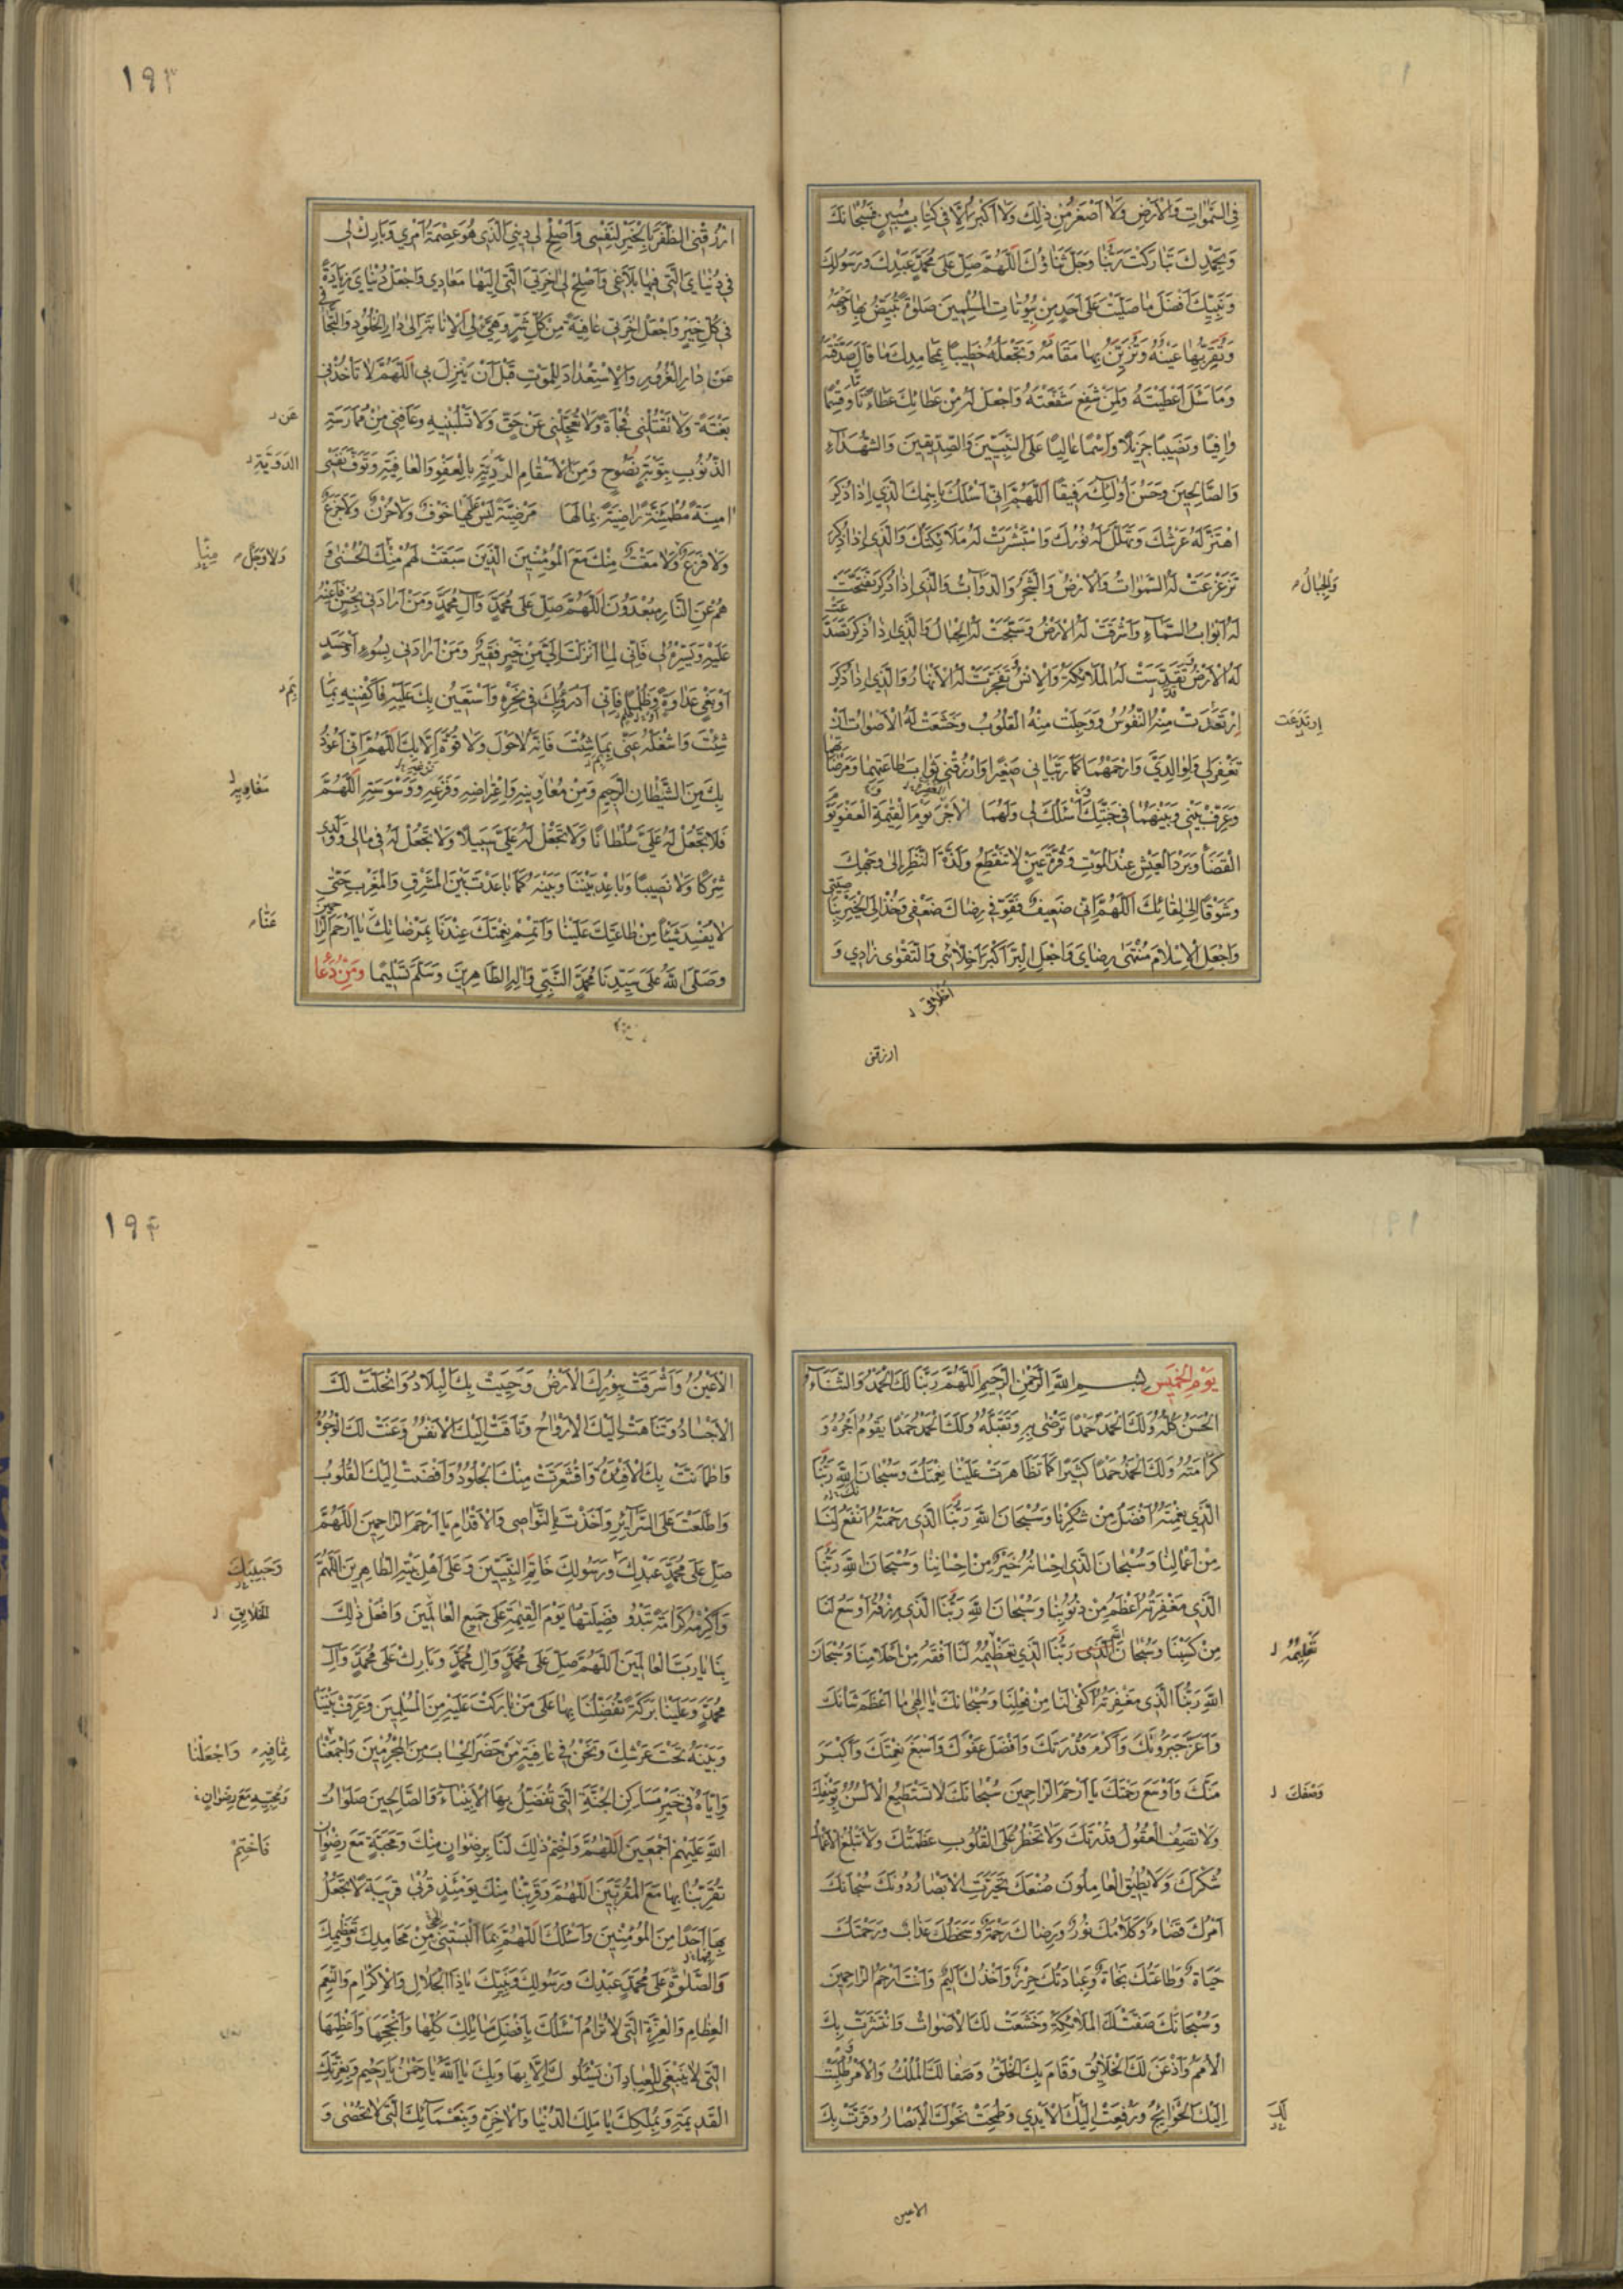 فِي السَّمٰوَاتِ وَالْاَرْضِ وَلَا اَصْغَرُ مِنْ ذٰلِكَ وَلَا اَكْبَرُ اِلَّا فِي كِتَابٍ مُبِينٍ فَسُبْحَانَكَ
وَبِحَمْدِكَ تَبَارَكْتَ رَبَّنَا وَجَلَّ ثَنَاؤُكَ اَللّٰهُمَّ صَلِّ عَلٰى مُحَمَّدٍ عَبْدِكَ وَرَسُولِكَ
وَنَبِيِّكَ اَفْضَلَ مَا صَلَّيْتَ عَلٰى اَحَدٍ مِنْ بُيُوتَاتِ الْمُسْلِمِينَ صَلٰوةً تُبَيِّضُ بِهَا وَجْهَهُ
وَتُقِرُّ بِهَا عَيْنَهُ وَتُزَيِّنُ بِهَا مَقَامَهُ وَتَجْعَلُهُ خَطِيبًا بِمَحَامِدِكَ مَا قَالَ صَدَّقْتَهُ
وَمَا سَئَلَ اَعْطَيْتَهُ وَلِمَنْ شَفَعَ شَفَّعْتَهُ وَاجْعَلْ لَهُ مِنْ عَطَائِكَ عَطَاءً تَامًّا وَقِسْمًا
وَافِيًا وَنَصِيبًا جَزِيلًا وَاسْمًا عَالِيًا عَلَى النَّبِيِّينَ وَالصِّدِّيقِينَ وَالشُّهَدَاءِ
وَالصَّالِحِينَ وَحَسُنَ اُولٰئِكَ رَفِيقًا اَللّٰهُمَّ اِنِّي اَسْئَلُكَ بِاسْمِكَ الَّذِي اِذَا ذُكِرَ
اهْتَزَّ لَهُ عَرْشُكَ وَتَهَلَّلَ لَهُ نُورُكَ وَاسْتَبْشَرَتْ لَهُ مَلَائِكَتُكَ وَالَّذِي اِذَا ذُكِرَ
تَزَعْزَعَتْ لَهُ السَّمٰوَاتُ وَالْاَرْضُ وَالشَّجَرُ وَالدَّوَابُّ وَالَّذِي اِذَا ذُكِرَ تَفَتَّحَتْ
وَالْجِبَالُ
لَهُ اَبْوَابُ السَّمَاءِ وَاَشْرَقَتْ لَهُ الْاَرْضُ وَسَبَّحَتْ لَهُ الْجِبَالُ وَالَّذِي اِذَا ذُكِرَ تَصَدَّعَتْ
لَهُ الْاَرْضُ وَتَقَدَّسَتْ لَهُ الْمَلَائِكَةُ وَالْاِنْسُ وَتَفَجَّرَتْ لَهُ الْاَنْهَارُ وَالَّذِي اِذَا ذُكِرَ
ارْتَعَدَتْ مِنْهُ النُّفُوسُ وَوَجِلَتْ مِنْهُ الْقُلُوبُ وَخَشَعَتْ لَهُ الْاَصْوَاتُ اَنْ
تَغْفِرَ لِي وَلِوَالِدَيَّ وَارْحَمْهُمَا كَمَا رَبَّيَانِي صَغِيرًا وَارْزُقْنِي ثَوَابَ طَاعَتِهِمَا وَمَرْضَاتِهِمَا
وَعَرِّفْ بَيْنِي وَبَيْنَهُمَا فِي جَنَّتِكَ اَسْئَلُكَ لِي وَلَهُمَا الْاَجْرَ يَوْمَ الْقِيٰمَةِ الْعَفْوَ يَوْمَ
الْقَضَاءِ وَبَرْدَ الْعَيْشِ عِنْدَ الْمَوْتِ وَقُرَّةَ عَيْنٍ لَا تَنْقَطِعُ وَلَذَّةَ النَّظَرِ اِلٰى وَجْهِكَ
وَشَوْقًا اِلٰى لِقَائِكَ اَللّٰهُمَّ اِنِّي ضَعِيفٌ فَقَوِّ فِي رِضَاكَ ضَعْفِي وَخُذْ اِلَى الْخَيْرِ بِنَاصِيَتِي
وَاجْعَلِ الْاِسْلَامَ مُنْتَهٰى رِضَايَ وَاجْعَلِ الْبِرَّ اَكْبَرَ اَخْلَاقِي وَالتَّقْوٰى زَادِي وَ
اَخْلَاقِي
ارزقنى
١٩٣
ارْزُقْنِي الظَّفَرَ بِالْخَيْرِ لِنَفْسِي وَاَصْلِحْ لِي دِينِيَ الَّذِي هُوَ عِصْمَةُ اَمْرِي وَبَارِكْ لِي
فِي دُنْيَايَ الَّتِي فِيهَا بَلَاغِي وَاَصْلِحْ لِي اٰخِرَتِيَ الَّتِي اِلَيْهَا مَعَادِي وَاجْعَلْ دُنْيَايَ زِيَادَةً
فِي كُلِّ خَيْرٍ وَاجْعَلْ اٰخِرَتِي عَافِيَةً مِنْ كُلِّ شَرٍّ وَهَيِّئْ لِيَ الْاِنَابَةَ اِلٰى دَارِ الْخُلُودِ وَالتَّجَافِيَ
عَنْ دَارِ الْغُرُورِ وَالْاِسْتِعْدَادَ لِلْمَوْتِ قَبْلَ اَنْ يَنْزِلَ بِي اَللّٰهُمَّ لَا تَاْخُذْنِي
بَغْتَةً وَلَا تَقْتُلْنِي فُجْاَةً وَلَا تُعَجِّلْنِي عَنْ حَقٍّ وَلَا تَسْلُبْنِيهِ وَعَافِنِي مِنْ مُمَارَسَةِ
الذُّنُوبِ بِتَوْبَةٍ نَصُوحٍ وَمِنَ الْاَسْقَامِ الرَّدِيَّةِ بِالْعَفْوِ وَالْعَافِيَةِ وَتَوَفَّ نَفْسِي
اٰمِنَةً مُطْمَئِنَّةً رَاضِيَةً بِمَا لَهَا مَرْضِيَّةً لَيْسَ عَلَيْهَا خَوْفٌ وَلَا حُزْنٌ وَلَا جَزَعٌ
وَلَا فَزَعٌ وَلَا مَقْتٌ مِنْكَ مَعَ الْمُؤْمِنِينَ الَّذِينَ سَبَقَتْ لَهُمْ مِنْكَ الْحُسْنٰى وَ
وَلَا وَجَلٌ
هُمْ عَنِ النَّارِ مُبْعَدُونَ اَللّٰهُمَّ صَلِّ عَلٰى مُحَمَّدٍ وَاٰلِ مُحَمَّدٍ وَمَنْ اَرَادَنِي بِحُسْنٍ فَاَعِنْهُ
عَلَيْهِ وَيَسِّرْهُ لِي فَاِنِّي لِمَا اَنْزَلْتَ اِلَيَّ مِنْ خَيْرٍ فَقِيرٌ وَمَنْ اَرَادَنِي بِسُوءٍ اَوْ حَسَدٍ
اَوْ بَغْيٍ عَدَاوَةً وَظُلْمًا فَاِنِّي اَدْرَؤُكَ فِي نَحْرِهِ وَاَسْتَعِينُ بِكَ عَلَيْهِ فَاكْفِنِيهِ بِمَا
شِئْتَ وَاشْغَلْهُ عَنِّي بِمَا شِئْتَ فَاِنَّهُ لَا حَوْلَ وَلَا قُوَّةَ اِلَّا بِكَ اَللّٰهُمَّ اِنِّي اَعُوذُ
بِكَ مِنَ الشَّيْطَانِ الرَّجِيمِ وَمِنْ مَغَاوِيهِ وَاعْتِرَاضِهِ وَفَزَعِهِ وَوَسْوَسَتِهِ اَللّٰهُمَّ
فَلَا تَجْعَلْ لَهُ عَلَيَّ سُلْطَانًا وَلَا تَجْعَلْ لَهُ عَلَيَّ سَبِيلًا وَلَا تَجْعَلْ لَهُ فِي مَالِي وَوَلَدِي
شِرْكًا وَلَا نَصِيبًا وَبَاعِدْ بَيْنَنَا وَبَيْنَهُ كَمَا بَاعَدْتَ بَيْنَ الْمَشْرِقِ وَالْمَغْرِبِ حَتّٰى
لَا يُفْسِدَ شَيْئًا مِنْ طَاعَتِكَ عَلَيْنَا وَاَتْمِمْ نِعْمَتَكَ عِنْدَنَا بِمَرْضَاتِكَ يَا اَرْحَمَ الرَّاحِمِينَ
وَصَلَّى اللّٰهُ عَلٰى سَيِّدِنَا مُحَمَّدٍ النَّبِيِّ وَاٰلِهِ الطَّاهِرِينَ وَسَلَّمَ تَسْلِيمًا وَمِنْ دُعَا
يَوْمِ الْخَمِيسِ بِسْمِ اللّٰهِ الرَّحْمٰنِ الرَّحِيمِ اَللّٰهُمَّ رَبَّنَا لَكَ الْحَمْدُ وَالثَّنَاءُ
الْحَسَنُ كُلُّهُ وَلَكَ الْحَمْدُ حَمْدًا تَرْضٰى بِهِ وَتَقَبَّلُهُ وَلَكَ الْحَمْدُ حَمْدًا يَقُومُ اَجْرُهُ وَ
كَرَامَتُهُ وَلَكَ الْحَمْدُ حَمْدًا كَثِيرًا كَمَا تَظَاهَرَتْ عَلَيْنَا نِعْمَتُكَ وَسُبْحَانَ اللّٰهِ رَبِّنَا
الَّذِي نِعْمَتُهُ اَفْضَلُ مِنْ شُكْرِنَا وَسُبْحَانَ اللّٰهِ رَبِّنَا الَّذِي رَحْمَتُهُ اَنْفَعُ لَنَا
مِنْ اَعْمَالِنَا وَسُبْحَانَ الَّذِي اِحْسَانُهُ خَيْرٌ مِنْ اِحْسَانِنَا وَسُبْحَانَ اللّٰهِ رَبِّنَا
الَّذِي مَغْفِرَتُهُ اَعْظَمُ مِنْ ذُنُوبِنَا وَسُبْحَانَ اللّٰهِ رَبِّنَا الَّذِي رِزْقُهُ اَوْسَعُ لَنَا
مِنْ كَسْبِنَا وَسُبْحَانَ الَّذِي رَبِّنَا الَّذِي تَعْظِيمُهُ لَنَا اَفْقَهُ مِنْ اَحْلَامِنَا وَسُبْحَانَ
اللّٰهِ رَبِّنَا الَّذِي مَغْفِرَتُهُ اَكْفٰى لَنَا مِنْ فِعْلِنَا وَسُبْحَانَكَ يَا اِلٰهِي مَا اَعْظَمَ شَاْنَكَ
وَاَعَزَّ جَبَرُوتَكَ وَاَكْرَمَ قُدْرَتَكَ وَاَفْضَلَ عَفْوَكَ وَاَسْبَغَ نِعْمَتَكَ وَاَكْبَرَ
مَنَّكَ وَاَوْسَعَ رَحْمَتَكَ يَا اَرْحَمَ الرَّاحِمِينَ سُبْحَانَكَ لَا تَسْتَطِيعُ الْاَلْسُنُ بِوَصْفِكَ
وَصْفَكَ
وَلَا تَصِفُ الْعُقُولُ قُدْرَتَكَ وَلَا تَخْطُرُ عَلَى الْقُلُوبِ عَظَمَتُكَ وَلَا تَبْلُغُ الْاَعْمَالُ
شُكْرَكَ وَلَا يُطِيقُ الْعَامِلُونَ صُنْعَكَ تَحَيَّرَتِ الْاَبْصَارُ دُونَكَ سُبْحَانَكَ
اَمْرُكَ قَضَاءٌ وَكَلَامُكَ نُورٌ وَرِضَاكَ رَحْمَةٌ وَسَخَطُكَ عَذَابٌ وَرَحْمَتُكَ
حَيَاةٌ وَطَاعَتُكَ نَجَاةٌ وَعِبَادَتُكَ حِرْزٌ وَاَخْذُكَ اَلِيمٌ وَاَنْتَ اَرْحَمُ الرَّاحِمِينَ
وَسُبْحَانَكَ صَفَّتْ لَكَ الْمَلَائِكَةُ وَخَشَعَتْ لَكَ الْاَصْوَاتُ وَانْتَشَرَتْ بِكَ
الْاُمَمُ وَاَذْعَنَ لَكَ الْخَلَائِقُ وَقَامَ بِكَ الْخَلْقُ وَصَفَا لَكَ الْمُلْكُ وَالْاَمْرُ وَطُلِبَتْ
اِلَيْكَ الْحَوَائِجُ وَرُفِعَتْ اِلَيْكَ الْاَيْدِي وَطَمَحَتْ نَحْوَكَ الْاَبْصَارُ وَقَرَّتْ بِكَ
لَكَ
الاعين
١٩۴
الْاَعْيُنُ وَاَشْرَقَتْ بِنُورِكَ الْاَرْضُ وَحَيِيَتْ بِكَ الْبِلَادُ وَانْحَلَتْ لَكَ
الْاَجْسَادُ وَتَنَاهَتْ اِلَيْكَ الْاَرْوَاحُ وَتَاقَتْ اِلَيْكَ الْاَنْفُسُ وَعَنَتْ لَكَ الْوُجُوهُ
وَاطْمَاَنَّتْ بِكَ الْاَفْئِدَةُ وَاقْشَعَرَّتْ مِنْكَ الْجُلُودُ وَاَفْضَتْ اِلَيْكَ الْقُلُوبُ
وَاطَّلَعْتَ عَلَى السَّرَائِرِ وَاَخَذْتَ بِالنَّوَاصِي وَالْاَقْدَامِ يَا اَرْحَمَ الرَّاحِمِينَ اَللّٰهُمَّ
صَلِّ عَلٰى مُحَمَّدٍ عَبْدِكَ وَرَسُولِكَ خَاتَمِ النَّبِيِّينَ وَعَلٰى اَهْلِ بَيْتِهِ الطَّاهِرِينَ اَللّٰهُمَّ
وَحَبِيبِكَ
وَاَكْرِمْهُ كَرَامَةً تَبْدُو فَضِيلَتُهَا يَوْمَ الْقِيٰمَةِ عَلٰى جَمِيعِ الْعَالَمِينَ وَافْعَلْ ذٰلِكَ
الْخَلَايِقِ
بِنَا يَا رَبَّ الْعَالَمِينَ اَللّٰهُمَّ صَلِّ عَلٰى مُحَمَّدٍ وَاٰلِ مُحَمَّدٍ وَبَارِكْ عَلٰى مُحَمَّدٍ وَاٰلِ
مُحَمَّدٍ وَعَلَيْنَا بَرَكَةً تُفَضِّلُنَا بِهَا عَلٰى مَنْ بَارَكْتَ عَلَيْهِ مِنَ الْمُسْلِمِينَ وَعَرِّفْ بَيْنَنَا
وَبَيْنَهُ تَحْتَ عَرْشِكَ وَنَحْنُ فِي عَافِيَةٍ مِنْ حَضَرِ الْحِسَابِ بَيْنَ الْمُجْرِمِينَ وَاجْمَعْنَا
وَاجْعَلْنَا
وَاِيَّاهُ فِي خَيْرِ مَسَاكِنِ الْجَنَّةِ الَّتِي تُفَضِّلُ بِهَا الْاَنْبِيَاءَ وَالصَّالِحِينَ صَلَوَاتُ
اللّٰهِ عَلَيْهِمْ اَجْمَعِينَ اَللّٰهُمَّ وَاخْتِمْ ذٰلِكَ لَنَا بِرِضْوَانٍ مِنْكَ وَمَحَبَّةٍ مَعَ رِضْوَانٍ
فَاخْتِمْ
تُقَرِّبُنَا بِهَا مَعَ الْمُقَرَّبِينَ اَللّٰهُمَّ وَقَرِّبْنَا مِنْكَ يَوْمَئِذٍ قُرْبٰى قَرِيبَةً لَا تَجْعَلُ
بِهَا اَحَدًا مِنَ الْمُؤْمِنِينَ وَاَسْئَلُكَ اللّٰهُمَّ بِمَا اَلْبَسْتَنِي مِنْ مَحَامِدِكَ وَتَعْظِيمِكَ
وَالصَّلٰوةِ عَلٰى مُحَمَّدٍ عَبْدِكَ وَرَسُولِكَ وَنَبِيِّكَ يَا ذَا الْجَلَالِ وَالْاِكْرَامِ وَالنِّعَمِ
الْعِظَامِ وَالْعِزَّةِ الَّتِي لَا تُرَامُ اَسْئَلُكَ بِاَفْضَلِ مَسَائِلِكَ كُلِّهَا وَاَنْجَحِهَا وَاَعْظَمِهَا
الَّتِي لَا يَنْبَغِي لِلْعِبَادِ اَنْ يَسْئَلُوكَ اِلَّا بِهَا وَبِكَ يَا اَللّٰهُ يَا رَحْمٰنُ يَا رَحِيمُ وَبِعِزَّتِكَ
الْقَدِيمَةِ وَبِمُلْكِكَ يَا مَلِكَ الدُّنْيَا وَالْاٰخِرَةِ وَبِنَعْمَائِكَ الَّتِي لَا تُحْصٰى وَ